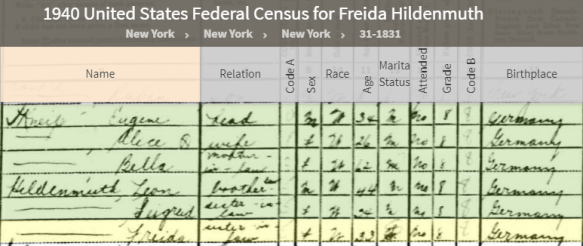 1940 United States Federal Census for Freida Hildenmuth
New York › New York › New York › 31-1831
Name Relation Code A Sex Race Age Marita Status Attended Grade Code B Birthplace
Eugene head m W 34 m no 8 Germany
Alice wife f W 26 m no 8 Germany
Bella mother-in-law f W 62 no 8 Germany
Hildenmuth Leon brother m W 44 no 8 Germany
sister-in-law f W no 8 Germany
Freida sister-in-law f W 23 no 8 Germany